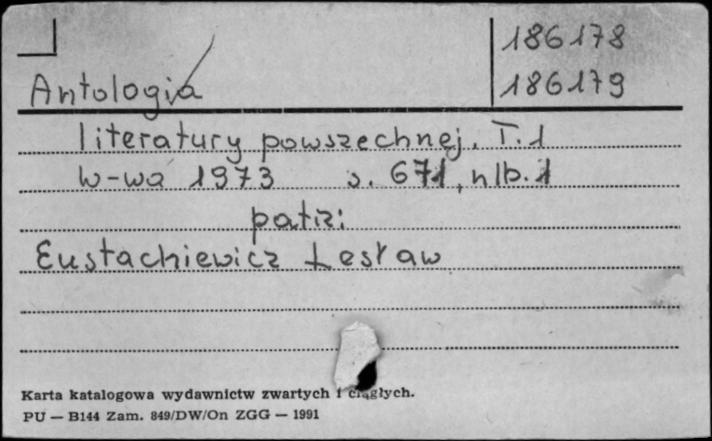 186178
186179
Antologia
literatury powszechnej. T.1
W-wa 1973 s. 671, nlb. 1
patrz:
Eustachiewicz Lesław
Karta katalogowa wydawnictw zwartych i ciągłych.
PU — B144 Zam. 849/DW/On ZGG — 1991